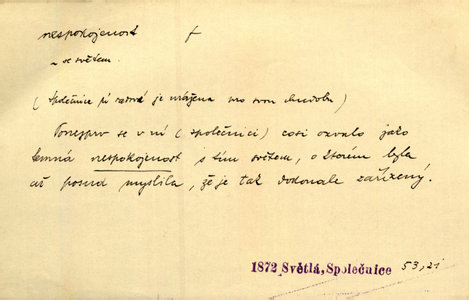 nespokojenost f
~ se světem.
(společnice pí radové je urážena pro svou chudobu)
Ponejprv se v ní (společnici) cosi ozvalo jako
temná nespokojenost s tím světem, o kterém byla
až posud myslila, že je tak dokonale zařízený.
1872 Světlá, Společnice 53, 21